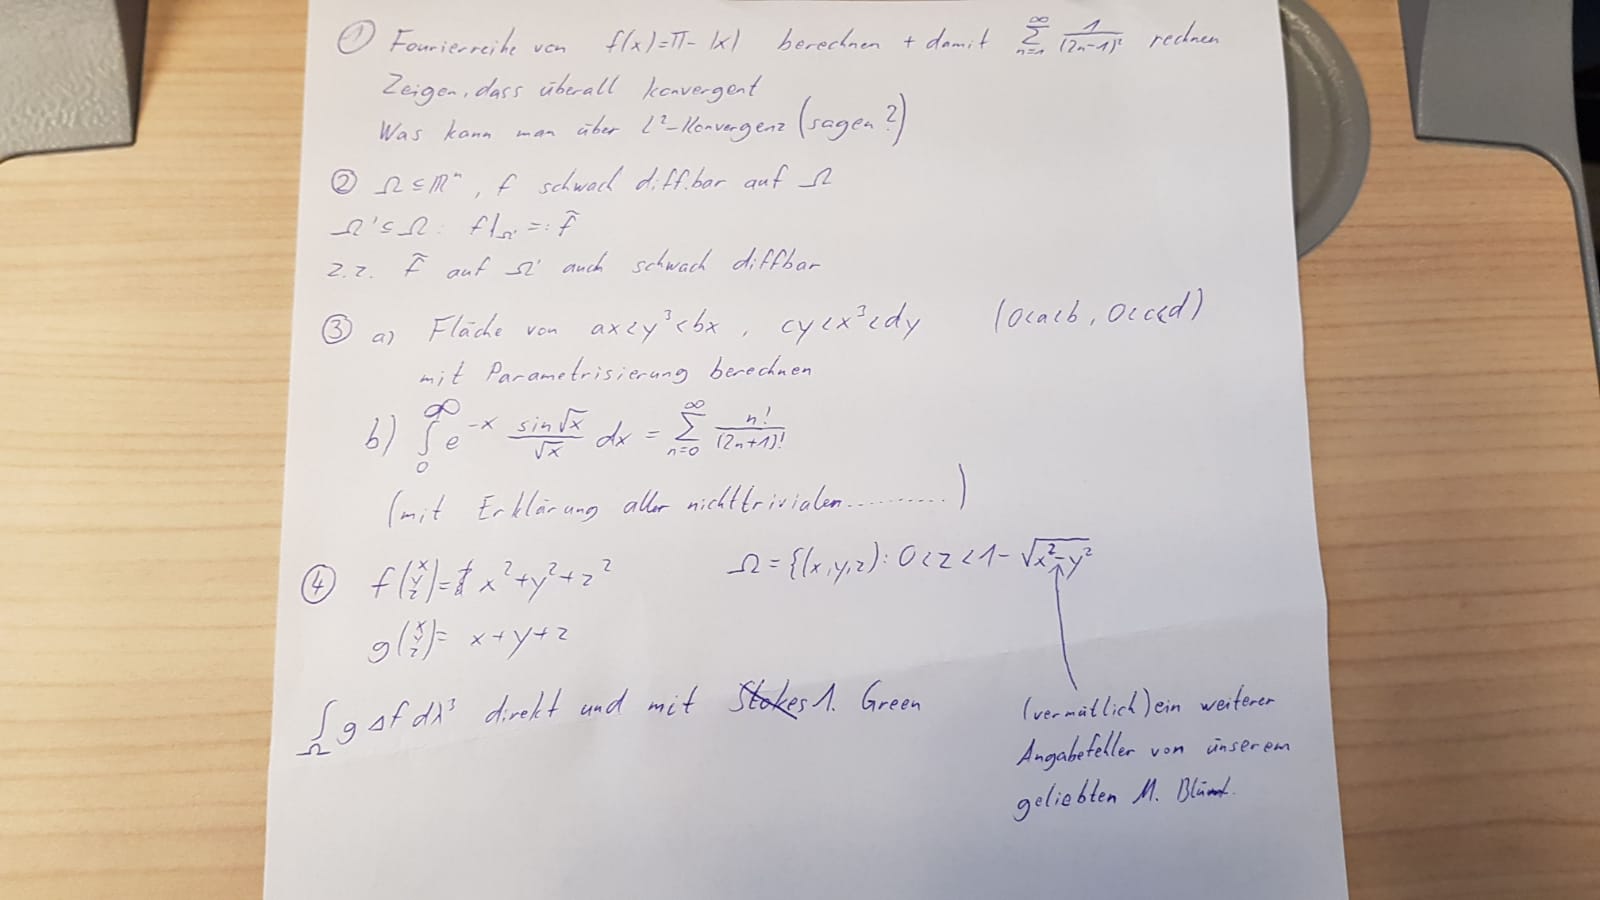 ① Fourierreihe von f(x)=π-|x| berechnen + damit ∑_{n=1}^{∞} 1/(2n-1)² rechnen
Zeigen, dass überall konvergent
Was kann man über L²-Konvergenz (sagen?)
② Ω⊆ℝⁿ, f schwach diff.bar auf Ω
Ω'⊆Ω: f|_{Ω'} =: f̃
z.z. f̃ auf Ω' auch schwach diffbar
③ a) Fläche von ax<y³<bx, cy<x³<dy (0<a<b, 0<c<d)
mit Parametrisierung berechnen
b) ∫_0^∞ e^{-x} sin√x/√x dx = ∑_{n=0}^{∞} n!/(2n+1)!
(mit Erklärung aller nichttrivialen..........)
④ f(x y z)= x²+y²+z² Ω={(x,y,z): 0<z<1-√(x²-y²)
g(x y z)= x+y+z
∫_Ω g Δf dλ³ direkt und mit Stokes 1. Green
(vermutlich) ein weiterer
Angabefehler von unserem
geliebten M. Blüml.